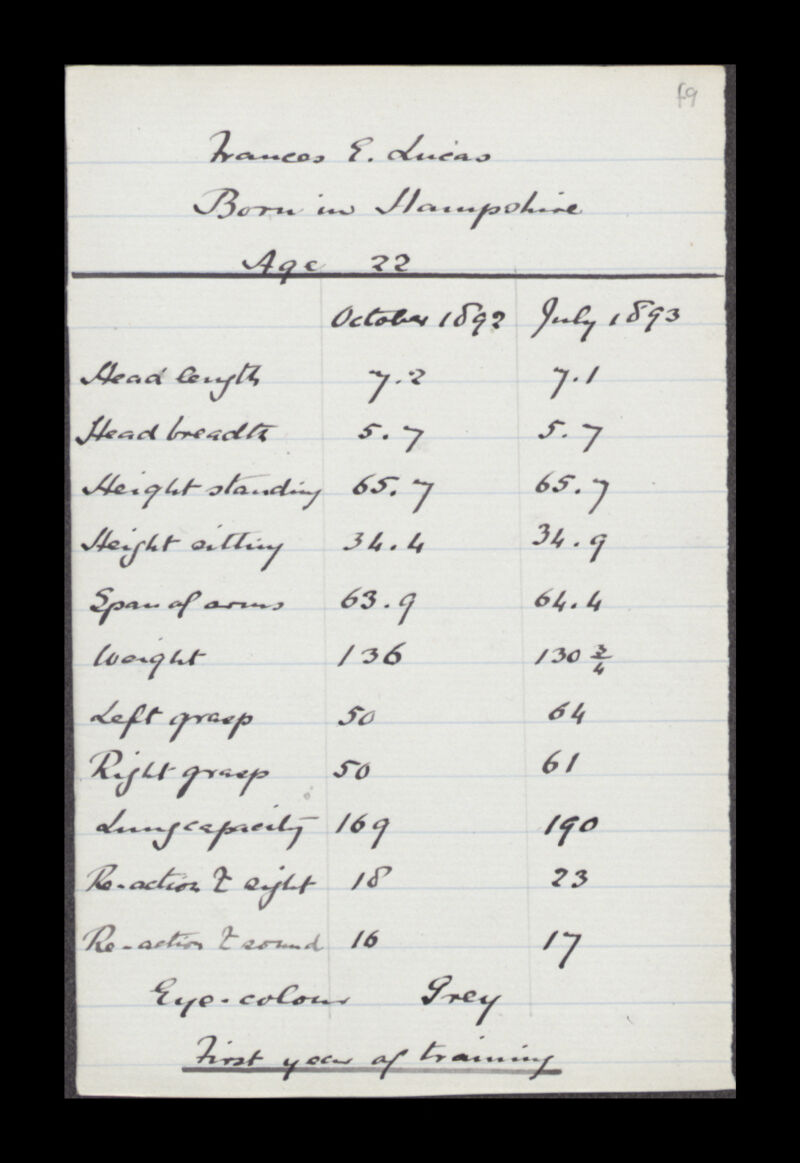 f9
Frances E. Lucas
Born in Hampshire
Age 22
October 1892 July 1893
Head length 7.2 7.1
Head breadth 5.7 5.7
Height standing 65.7 65.7
Height sitting 34.4 34.9
Span of arms 63.9 64.4
Weight 136 130 3/4
Left grasp 50 64
Right grasp 50 61
Lung capacity 169 190
Re-action to sight 18 23
Re-action to sound 16 17
Eye-colour Grey
First year of training